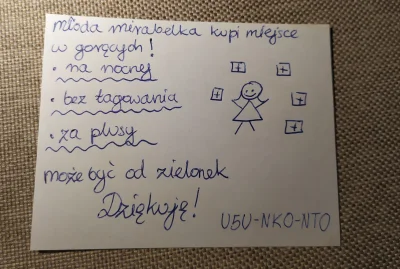 młoda mirabelka kupi miejsce
w gorących!
• na nocnej
• bez tagowania
• za plusy
może być od zielonek
Dziękuję!
U5U-NKO-NTO